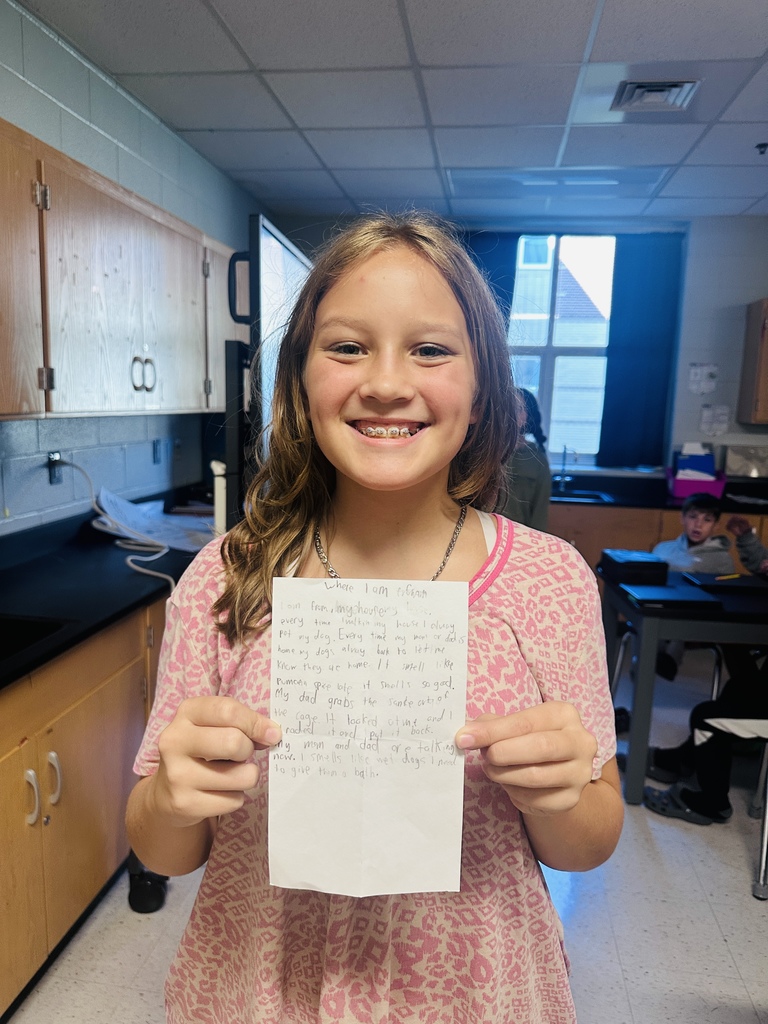 Where I am from
I am from
every time I walk in my house I always
pet my dog. Every time my mom or dad is
home my dogs always bark to let me
know they are home. It smell like
it smells so good.
My dad grabs the out of
the cage It looked at me and I
it and put it back.
my mom and dad are talking
now. I smells like wet dogs I need
to give them a bath.